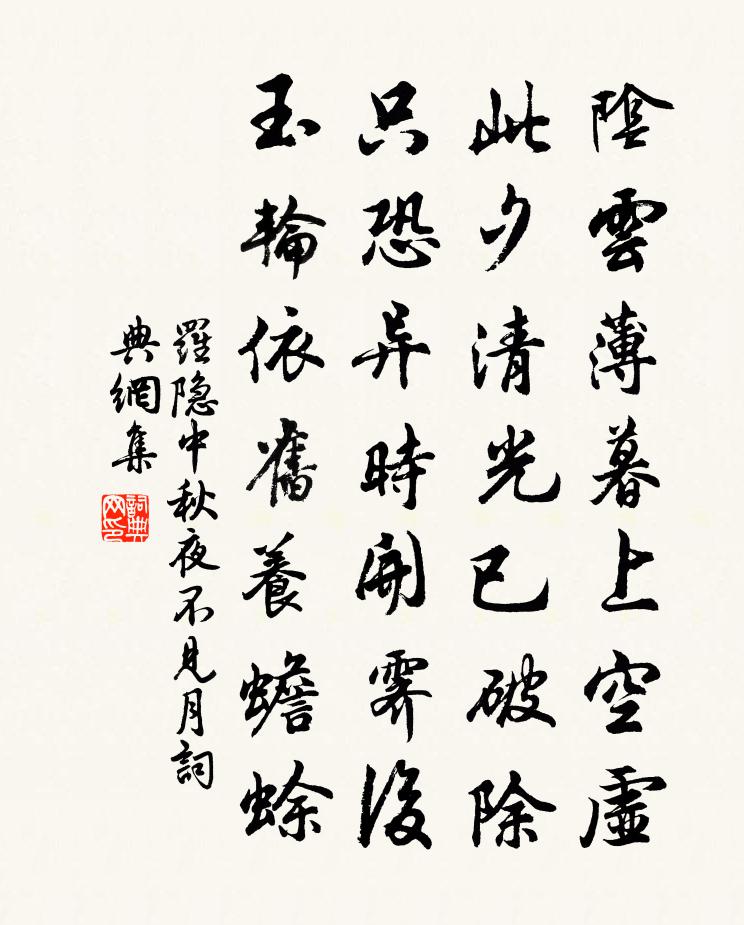 陰雲薄暮上空虛
此夕清光已破除
只恐异時開霽後
玉輪依舊養蟾蜍
羅隐中秋夜不見月詞
典網集
詞典網印